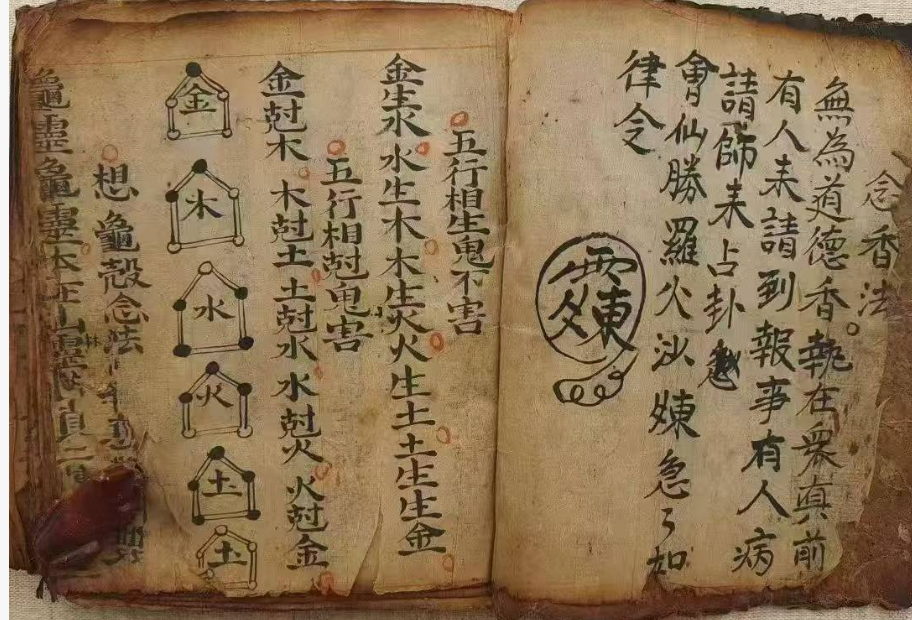 念香法
無為道德香執在衆真前
有人来請到報事有人病
請師来占卦
會仙勝羅火沙煉急々如
律令
五行相生鬼不害
金生水水生木木生火火生土土生生金
五行相尅鬼害
金尅木木尅土土尅水水尅火火尅金
金
木
水
火
土
土
想龜殼念法
龜靈龜靈本在山